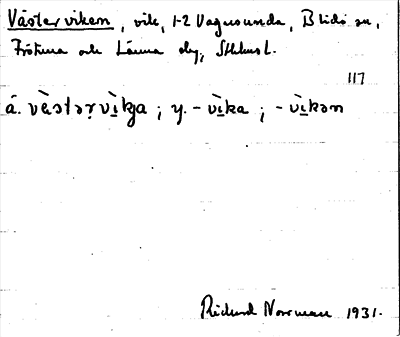 Västerviken, vik, 1-2 Vagnsunda, Blidö sn,
Frötuna och Länna skg, Sthlms l.
117
ä. và̀stər̥vì̱kja ; y. -vì̱ka ; -vì̱kən
Rickard Norrman 1931.